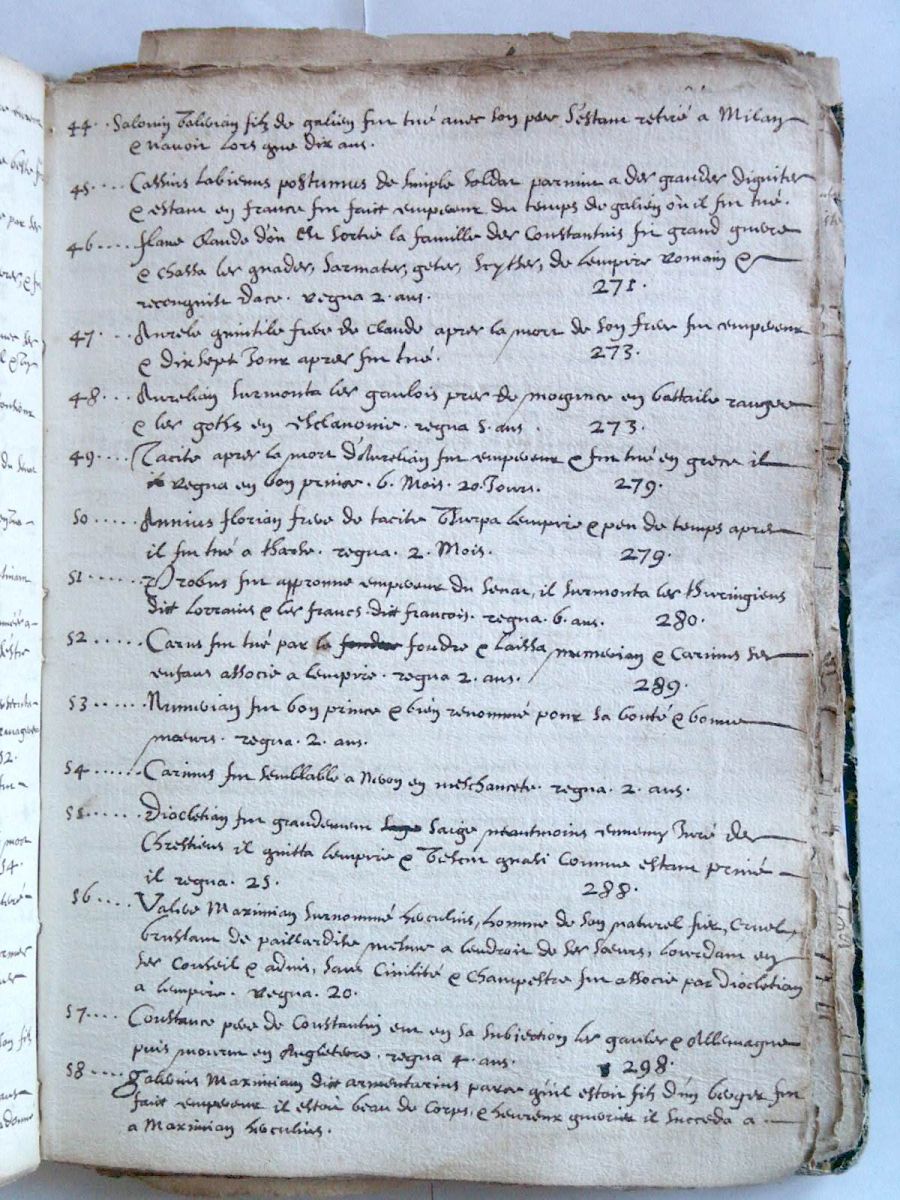 44. Salonin Valerian filz de galien fut tué avec son pere Sestant retiré a Milan
& navoit lors que dix ans.
45.... Cassius Labienus postumus de simple soldat parvint a des grandes dignites
& estant en france fut faict empereur du temps de galien où il fut tué.
46.... flave Claude d'où est sortie la famille des Constantins fut grand guerre
& chassa les quades, Sarmates, getes, Scythes, de lempire Romain &
reconquist Dace. regna 2. ans. 271.
47... Aurele quintile frere de Claude apres la mort de son frere fut empereur
& dix sept Jour apres fut tué. 273.
48... Aurelian surmonta les gaulois pres de mogunce en battaile rangee
& les goths en esclavonie. regna 5. ans. 273.
49... Tacite apres la mort d'Aurelian fut empereur & fut tué en grece il
regna en bon prince. 6. Mois. 20. Jours. 279.
50..... Annius florian frere de tacite Vsurpa lempire & peu de temps apres
il fut tué a tharse. regna. 2. Mois. 279.
51...... Probus fut approuvé empereur du Senat, il surmonta les thuringiens
dict Lorrains & les francs dict francois. regna. 6. ans. 280.
52..... Carus fut tué par le foudre & laissa numerian & Carinus ses
enfans associe a lempire. regna 2. ans. 289.
53...... Numerian fut bon prince & bien renommé pour sa bonté & bonne
mœurs. regna. 2. ans.
54...... Carinus fut semblable a Neron en meschancete. regna. 2. ans.
55...... Diocletian fut grandement saige neantmoins ennemy Juré des
Chrestiens il quitta lempire & Vescut quasi Comme estant privé
il regna. 25. 288.
56.... Valere Maximian surnommé herculius, homme de son naturel fier, Cruel,
brustant de paillardise mesme a lendroit de ses sœurs, lourdant en
ses Conseil & advis, sans Civilité & Champestre fut associe par Diocletian
a lempire. regna. 20.
57.... Constance pere de Constantin eut en sa subiection les gaules & Allemagne
puis mourut en Angleterre. regna 4. ans. 298.
58.... Galerius Maximian dict armentarius parce quil estoit filz d'un berger fut
faict empereur il estoit beau de Corps, & heureux guerrier il succeda a
a Maximian herculius.